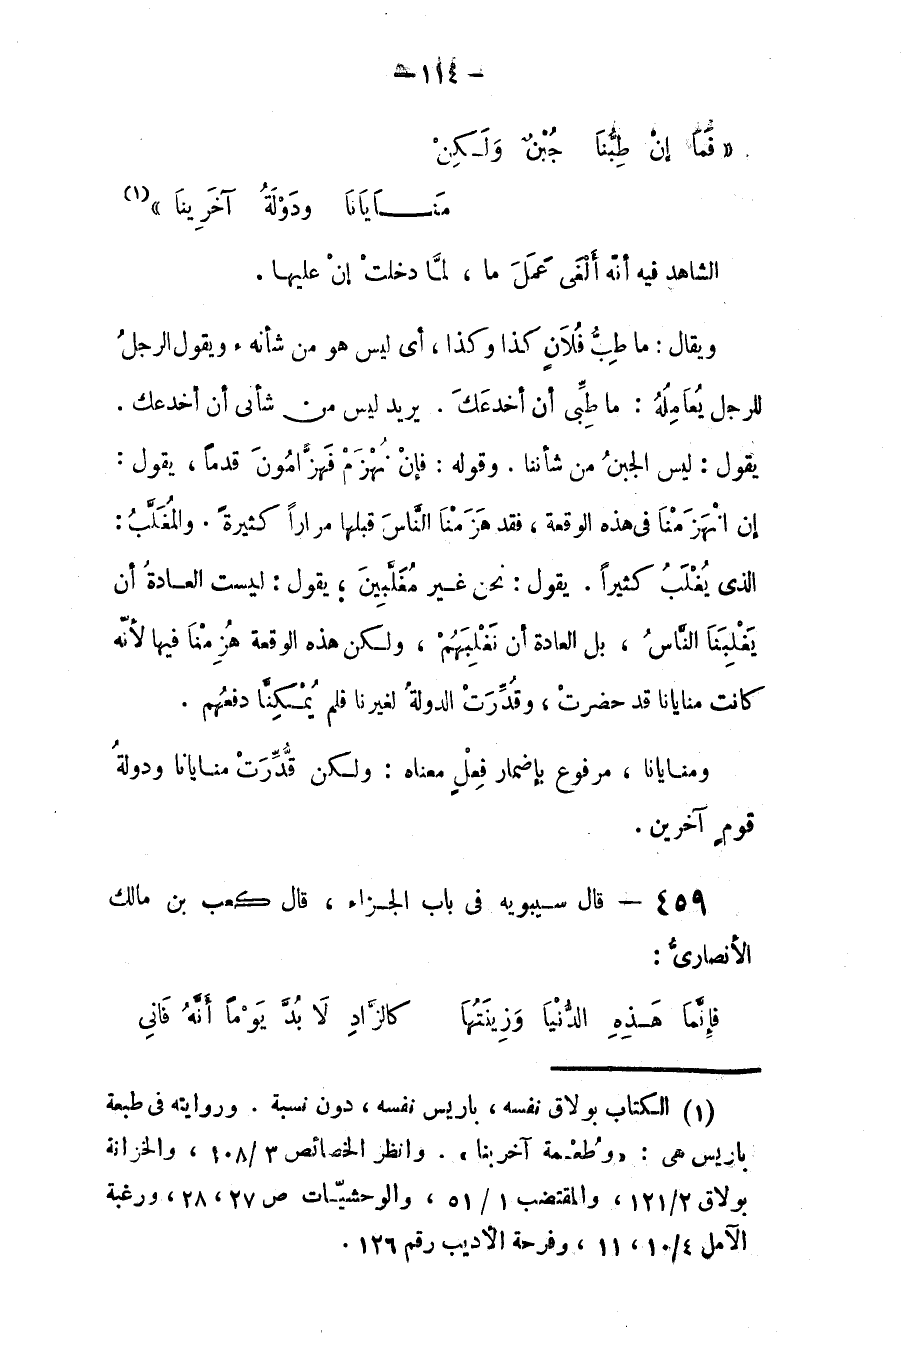 – ١١٤ –
« فَمَا إِنْ طِبُّنَا جُبْنٌ وَلَـكِنْ
مَنَــايَانَا ودَوْلَةُ آخَرِينَا »(١)
الشاهد فيه أنّه أَلْغَى عَمَلَ ما ، لمَّا دخلتْ إنْ عليهـا .
ويقال : ما طِبُّ فُلَانٍ كذا وكذا ، أى ليس هو من شأنه ، ويقول الرجلُ
للرجل يُعَامِلُهُ : ما طِبِّى أن أخدعَكَ . يريد ليس من شأنى أن أخدعك .
يقول : ليس الجبنُ من شأننا . وقوله : فإنْ نُهْزَمْ فَهزَّامُونَ قدماً ، يقول :
إن انْهَزَمْنَا فى هذه الوقعة ، فقد هَزَمْنَا النَّاسَ قبلها مراراً كثيرةً . والمُغَلَّبُ :
الذى يُغْلَبُ كثيراً . يقول : نحن غـير مُغَلَّبِينَ ؛ يقول : ليست العـادةُ أن
يَغْلِبَنَا النَّاسُ ، بل العادة أن نَغْلِبَهُمْ ، ولـكن هذه الوقعة هُزِمْنَا فيها لأنّه
كانت منايانا قد حضرتْ ، وقُدِّرَتْ الدولةُ لغيرنا فلم يُمْـكِنَّا دفعُهم .
ومنـايانا ، مرفوع بإضمار فِعْلٍ معناه : ولـكن قُدِّرَتْ منـايانا ودولةُ
قومٍ آخرين .
٤٥٩ – قال سـيبويه فى باب الجـزاء ، قال كعب بن مالك
الأنصارىُّ :
فإِنَّمَا هَـذِهِ الدُّنْيَا وَزِينَتُهَا كالزَّادِ لَا بُدَّ يَوْماً أَنَّهُ فَانِى
(١) الـكتاب بولاق نفسه ، باريس نفسه ، دون نسبة . وروايته فى طبعة
باريس هى : «وطُعْـمة آخرينا» . وانظر الخصائص ٣/١٠٨ ، والخزانة
بولاق ٢/١٢١ ، والمقتضب ١/٥١ ، والوحشيّـات ص ٢٧ ، ٢٨ ، ورغبة
الآمل ٤/١٠ ، ١١ ، وفرحة الأديب رقم ١٢٦ .